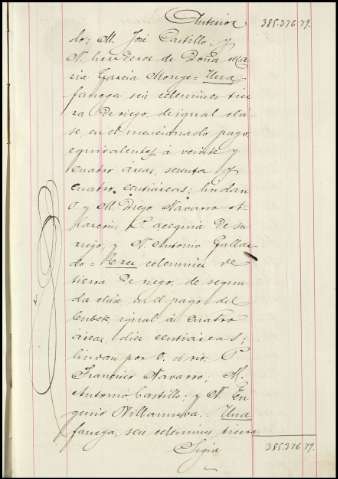 Anterior 385.376.79.
do; M. José Castillo, y
N. herederos de Doña Ma
ria Garcia Monge = Una
fanega seis celemines tier
ra de riego, de igual cla
se, en el mencionado pago
equivalentes á veinte y
cuatro áreas, sesenta y
cuatro centiáreas; lindan
O y M. Diego Navarro
Alarcón; P. acequia de su
riego, y N. Antonio Galla
do = Tres celemines de
tierra de riego, de segun
da clase en el pago del
igual á cuatro
áreas, diez centiáreas;
lindan por O. el rio; P.
Francisco Navarro; M.
Antonio Castillo; y N. Eu
genio Villanueva = Una
fanega, seis celemines tierra
Sigue 385.376.79.